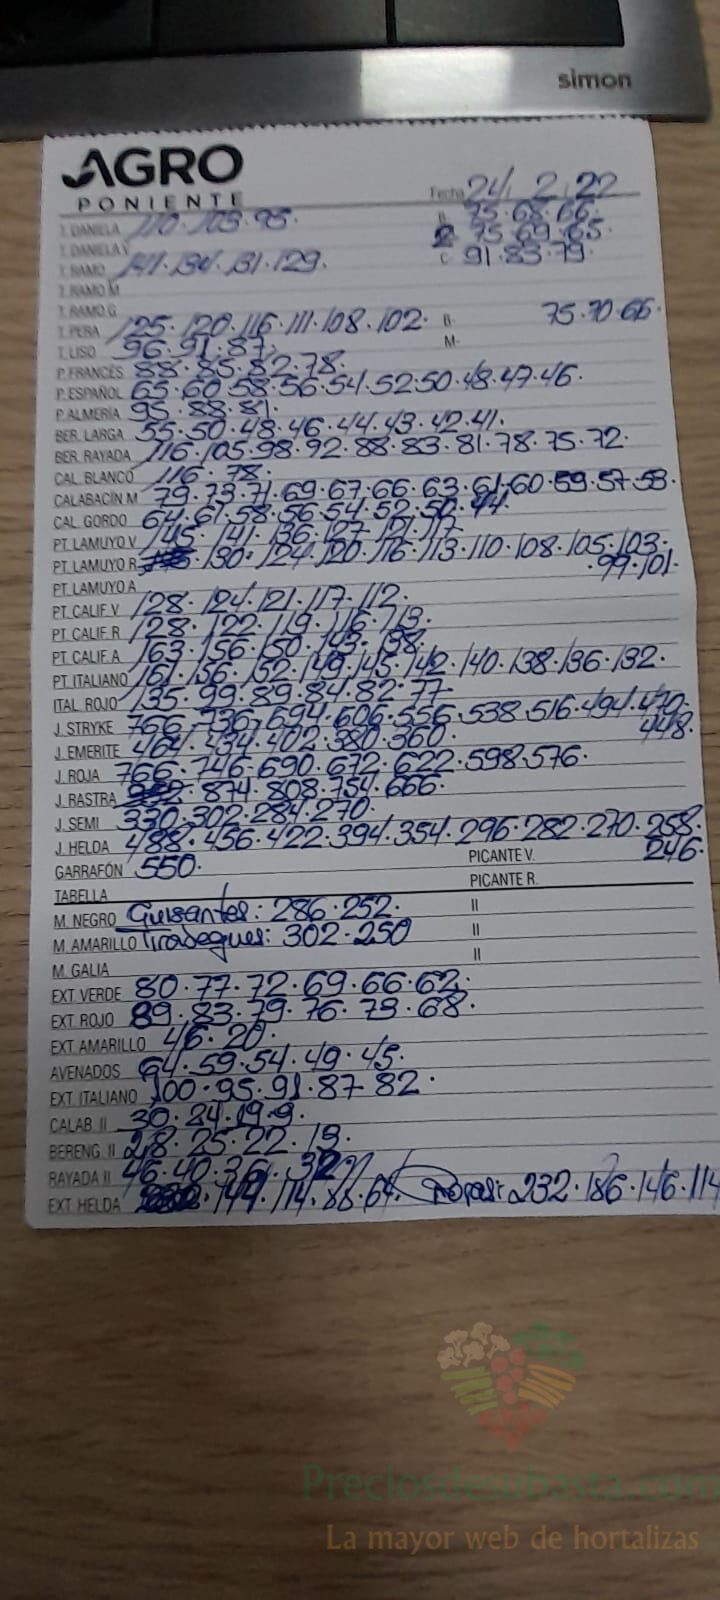 simon
AGRO
PONIENTE
Fecha 24, 2, 22
T. DANELA 110 . 103 . 95. B 75.68.66.
T. DANELA V 2 75.69.65.
T. RAMO 141.134.131.129. C 91.83.79.
T. RAMO M
T. RAMO G
T. PERA 125. 120. 116. 111. 108. 102. B. 75.70.66.
T. LISO 96.91.87. M.
P. FRANCÉS 88.85.82.78.
P. ESPAÑOL 65.60.58.56.54.52.50.48.47.46.
P. ALMERÍA 95.88.81.
BER. LARGA 55.50.48.46.44.43.42.41.
BER. RAYADA 116.105.98.92.88.83.81.78.75.72.
CAL. BLANCO 116.78.
CALABACÍN M 79.73.71.69.67.66.63.61.60.59.57.53.
CAL. GORDO 64.61.58.56.54.52.50.44.
PT. LAMUYO V 145. 141. 136. 127. 121. 117
PT. LAMUYO R 130. 124. 120. 116. 113. 110. 108. 105. 103.
.99.101.
PT. LAMUYO A
PT. CALIF. V 128. 124. 121. 117. 112.
PT. CALIF. R 128. 122. 119. 116. 113.
PT. CALIF. A 163. 156. 150. 143.
PT. ITALIANO 161. 156. 152. 149. 145. 142. 140. 138. 136. 132.
ITAL. ROJO 135. 99. 89. 84. 82. 77.
J. STRYKE 766. 736. 694. 606. 556. 538. 516. 494. 470.
448.
J. EMERITE 464. 434. 402. 380. 360.
J. ROJA 766. 746. 690. 672. 622. 598. 576.
J. RASTRA 874. 808. 754. 666.
J. SEMI 330. 302. 284. 270.
J. HELDA 488. 456. 422. 394. 354. 296. 282. 270. 258.
246.
GARRAFÓN 550. PICANTE V.
TABELLA PICANTE R.
M. NEGRO Guisantes: 286.252. II
M. AMARILLO Tirabeques: 302.250 II
M. GALIA II
EXT VERDE 80.77.72.69.66.62.
EXT ROJO 89.83.79.76.73.68.
EXT AMARILLO 46.20.
AVENADOS 64.59.54.49.45.
EXT ITALIANO 100.95.91.87.82.
CALAB. II 30.24.19.9.
BERENG. II 28.25.22.19.
RAYADA II 46.40.36.32
EXT HELDA 144. 114. 88. 64. 232.186.146.114
Preciosdesubasta.com
La mayor web de hortalizas